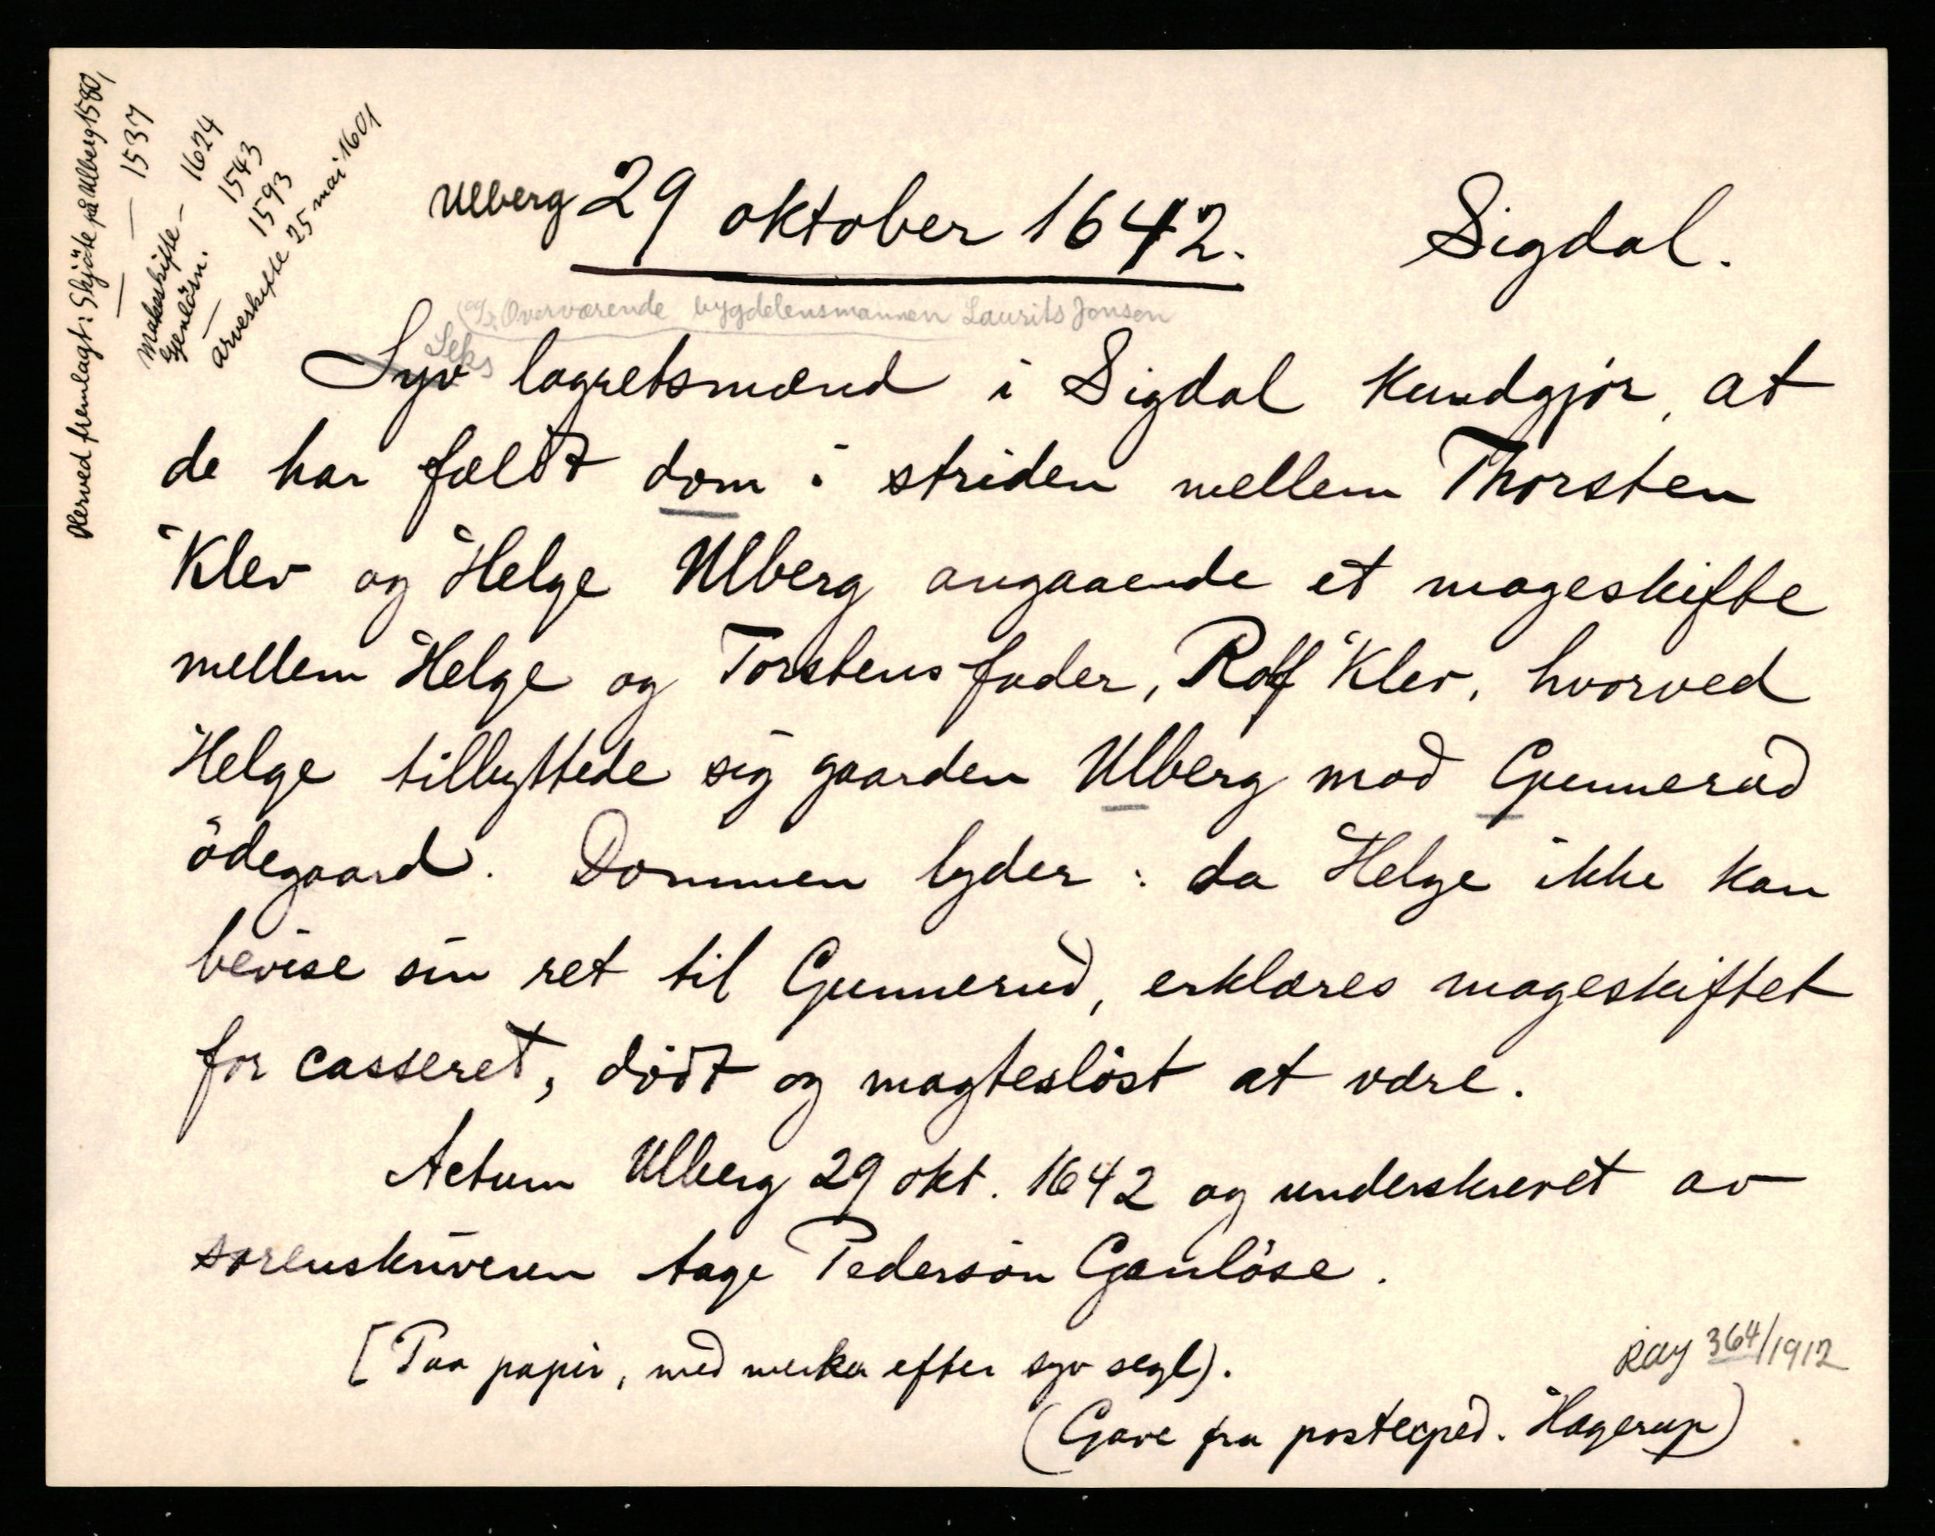 Herved fremlagt: Skjöte på Ulberg 1580,
— — 1537
Makeskifte — 1624
Gjenlösn. 1543
— 1593
Arveskifte 25 mai 1601
Ulberg 29 oktober 1642. Sigdal.
Overværende bygdelensmannen Laurits Jonsen
Seks
Syv lagretsmænd i Sigdal kundgjör, at
de har fældt dom i striden mellem Thorsten
Klev og Helge Ulberg angaaende et mageskifte
mellem Helge og Torstens fader, Rolf Klev, hvorved
Helge tilbyttede sig gaarden Ulberg mod Gunnerud
ödegaard. Dommen lyder: da Helge ikke kan
bevise sin ret til Gunnerud, erklæres mageskiftet
for casseret, dödt og magteslöst at være.
Actum Ulberg 29 okt. 1642 og underskrevet av
sorenskriveren Aage Pedersön Ganlöse.
[Paa papir, med merker efter syv segl).
RAy 364/1912
(Gave fra postexped. Hagerup)